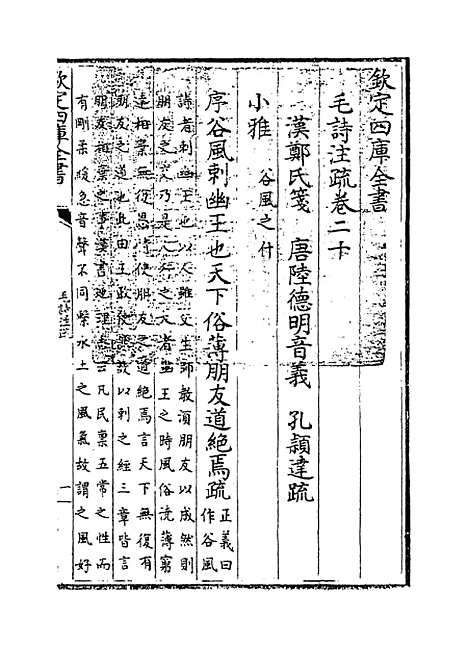 欽定四庫全書
毛詩注疏卷二十
漢鄭氏箋　唐陸德明音義　孔穎達疏
小雅　谷風之什
序谷風刺幽王也天下俗薄朋友道絶焉疏正義曰作谷風
詩者刺幽王也以人雖父生師教須朋友以成然則
朋友之交乃是人行之大者幽王之時風俗澆薄窮
達相棄無復恩情使朋友之道絶焉言天下無復有
朋友之道也此由王政使然故以刺之經三章皆言
朋友相棄之事漢書地理志云凡民禀五常之性而
有剛柔緩急音聲不同繫水土之風氣故謂之風好
欽定四庫全書
毛詩注疏
一